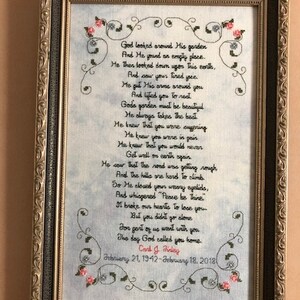 God looked around His garden
And He found an empty place.
He then looked down upon this earth,
And saw your tired face.
He put His arms around you
And lifted you to rest.
God's garden must be beautiful
He always takes the best.
He knew that you were suffering
He knew you were in pain
He knew that you would never
Get well on earth again.
He saw that the road was getting rough
And the hills are hard to climb.
So He closed your weary eyelids,
And whispered "Peace be thine".
It broke our hearts to lose you
But you didn't go alone
For part of us went with you
This day God called you home.
Carl J.
February 21, 1942-February 18, 2018